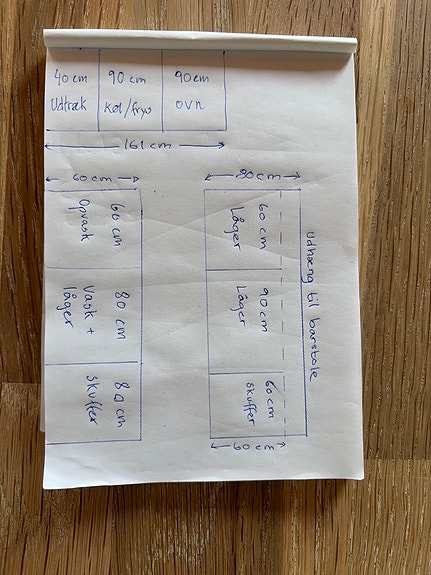 40 cm
Udtræk
90 cm
Køl/frys
90 cm
ovn
161 cm
60 cm
60 cm
Opvask
80 cm
Vask +
låger
80 cm
Skuffer
80 cm
60 cm
Låger
90 cm
Låger
60 cm
Skuffer
60 cm
Udhæng til barstole